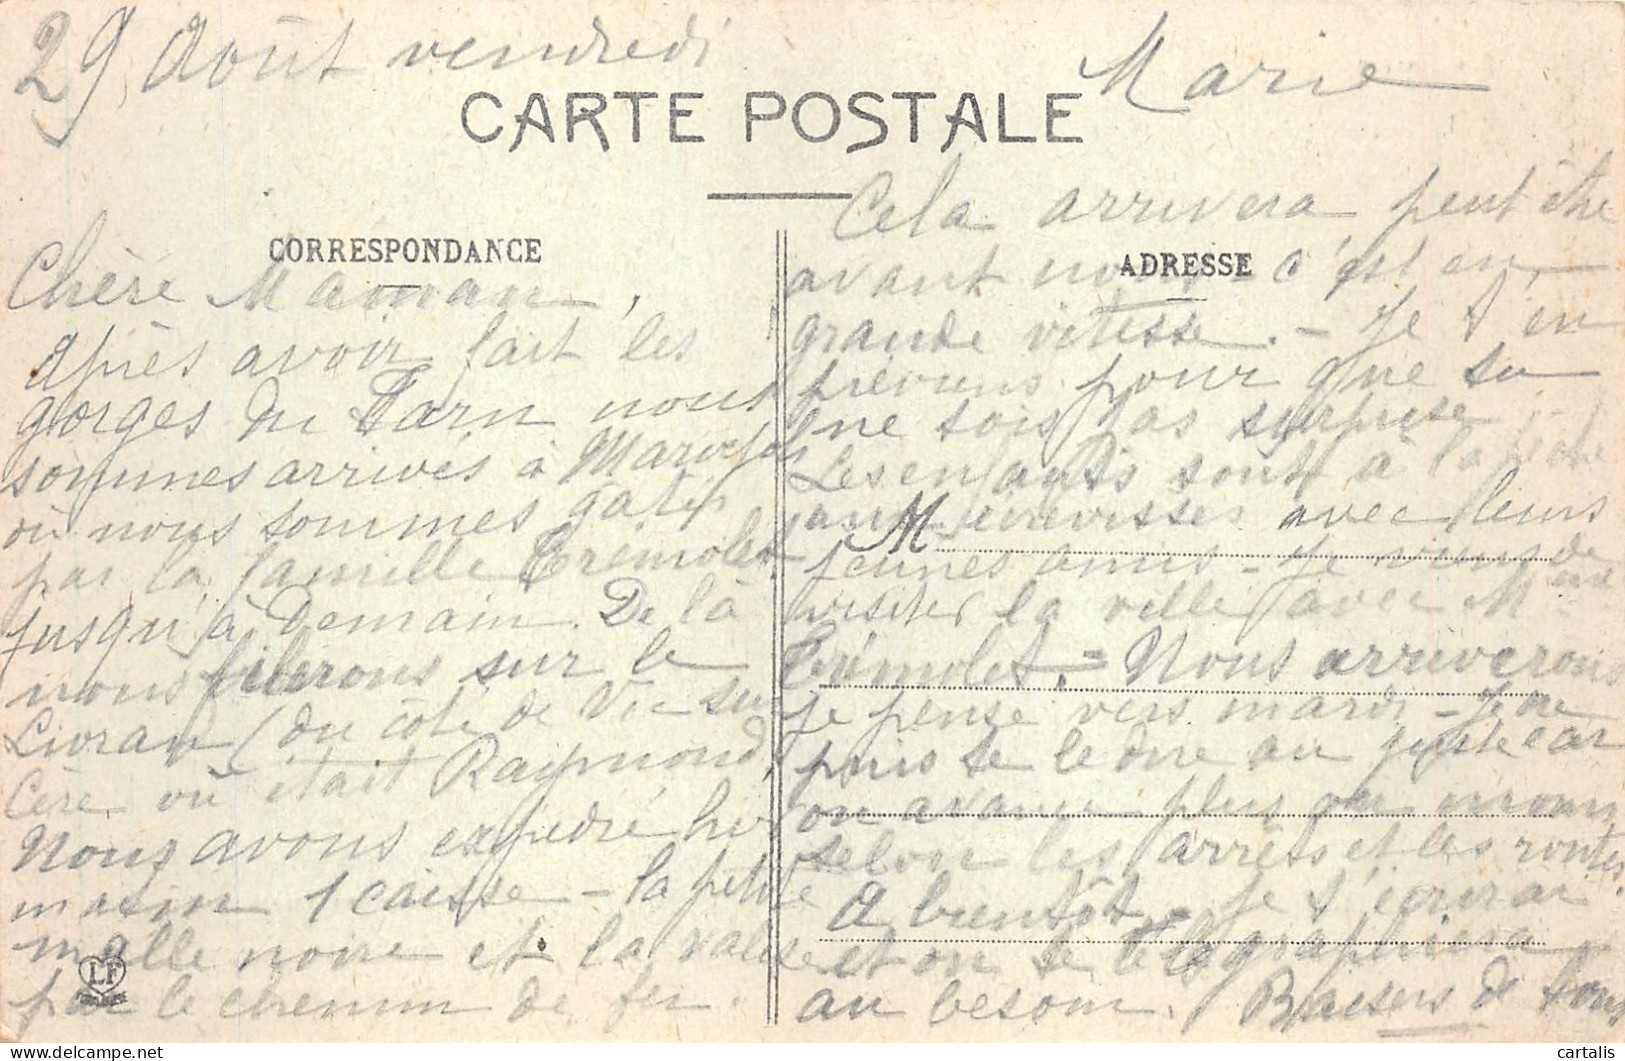 29 Août vendredi
Marie
CARTE POSTALE
CORRESPONDANCE
Chère Maman,
après avoir fait les
gorges du Tarn nous
sommes arrivés à Marvejols
où nous sommes gatés
par la famille Trémolet
jusqu'à demain. De là
nous filerons sur le
Livran (du côté de Vic sur
Cère où était Raymond)
Nous avons expédié hier
matin 1 caisse - la petite
malle noire et la valise
par le chemin de fer.
LF
ADRESSE
Cela arrivera peut être
avant nous c'est en
grande vitesse. - Je t'en
préviens pour que tu
ne sois pas surprise
Les enfants sont à la pêche
aux écrevisses avec leurs
M
jeunes amis - Je viens de
visiter la ville avec Mme
Trémolet. - Nous arriverons
je pense vers mardi - Je ne
puis te le dire au juste car
on avance plus ou moins
selon les arrêts et les routes.
A bientôt - Je t'écrirai
et on te télégraphiera
au besoin. Baisers de tous
cartalis